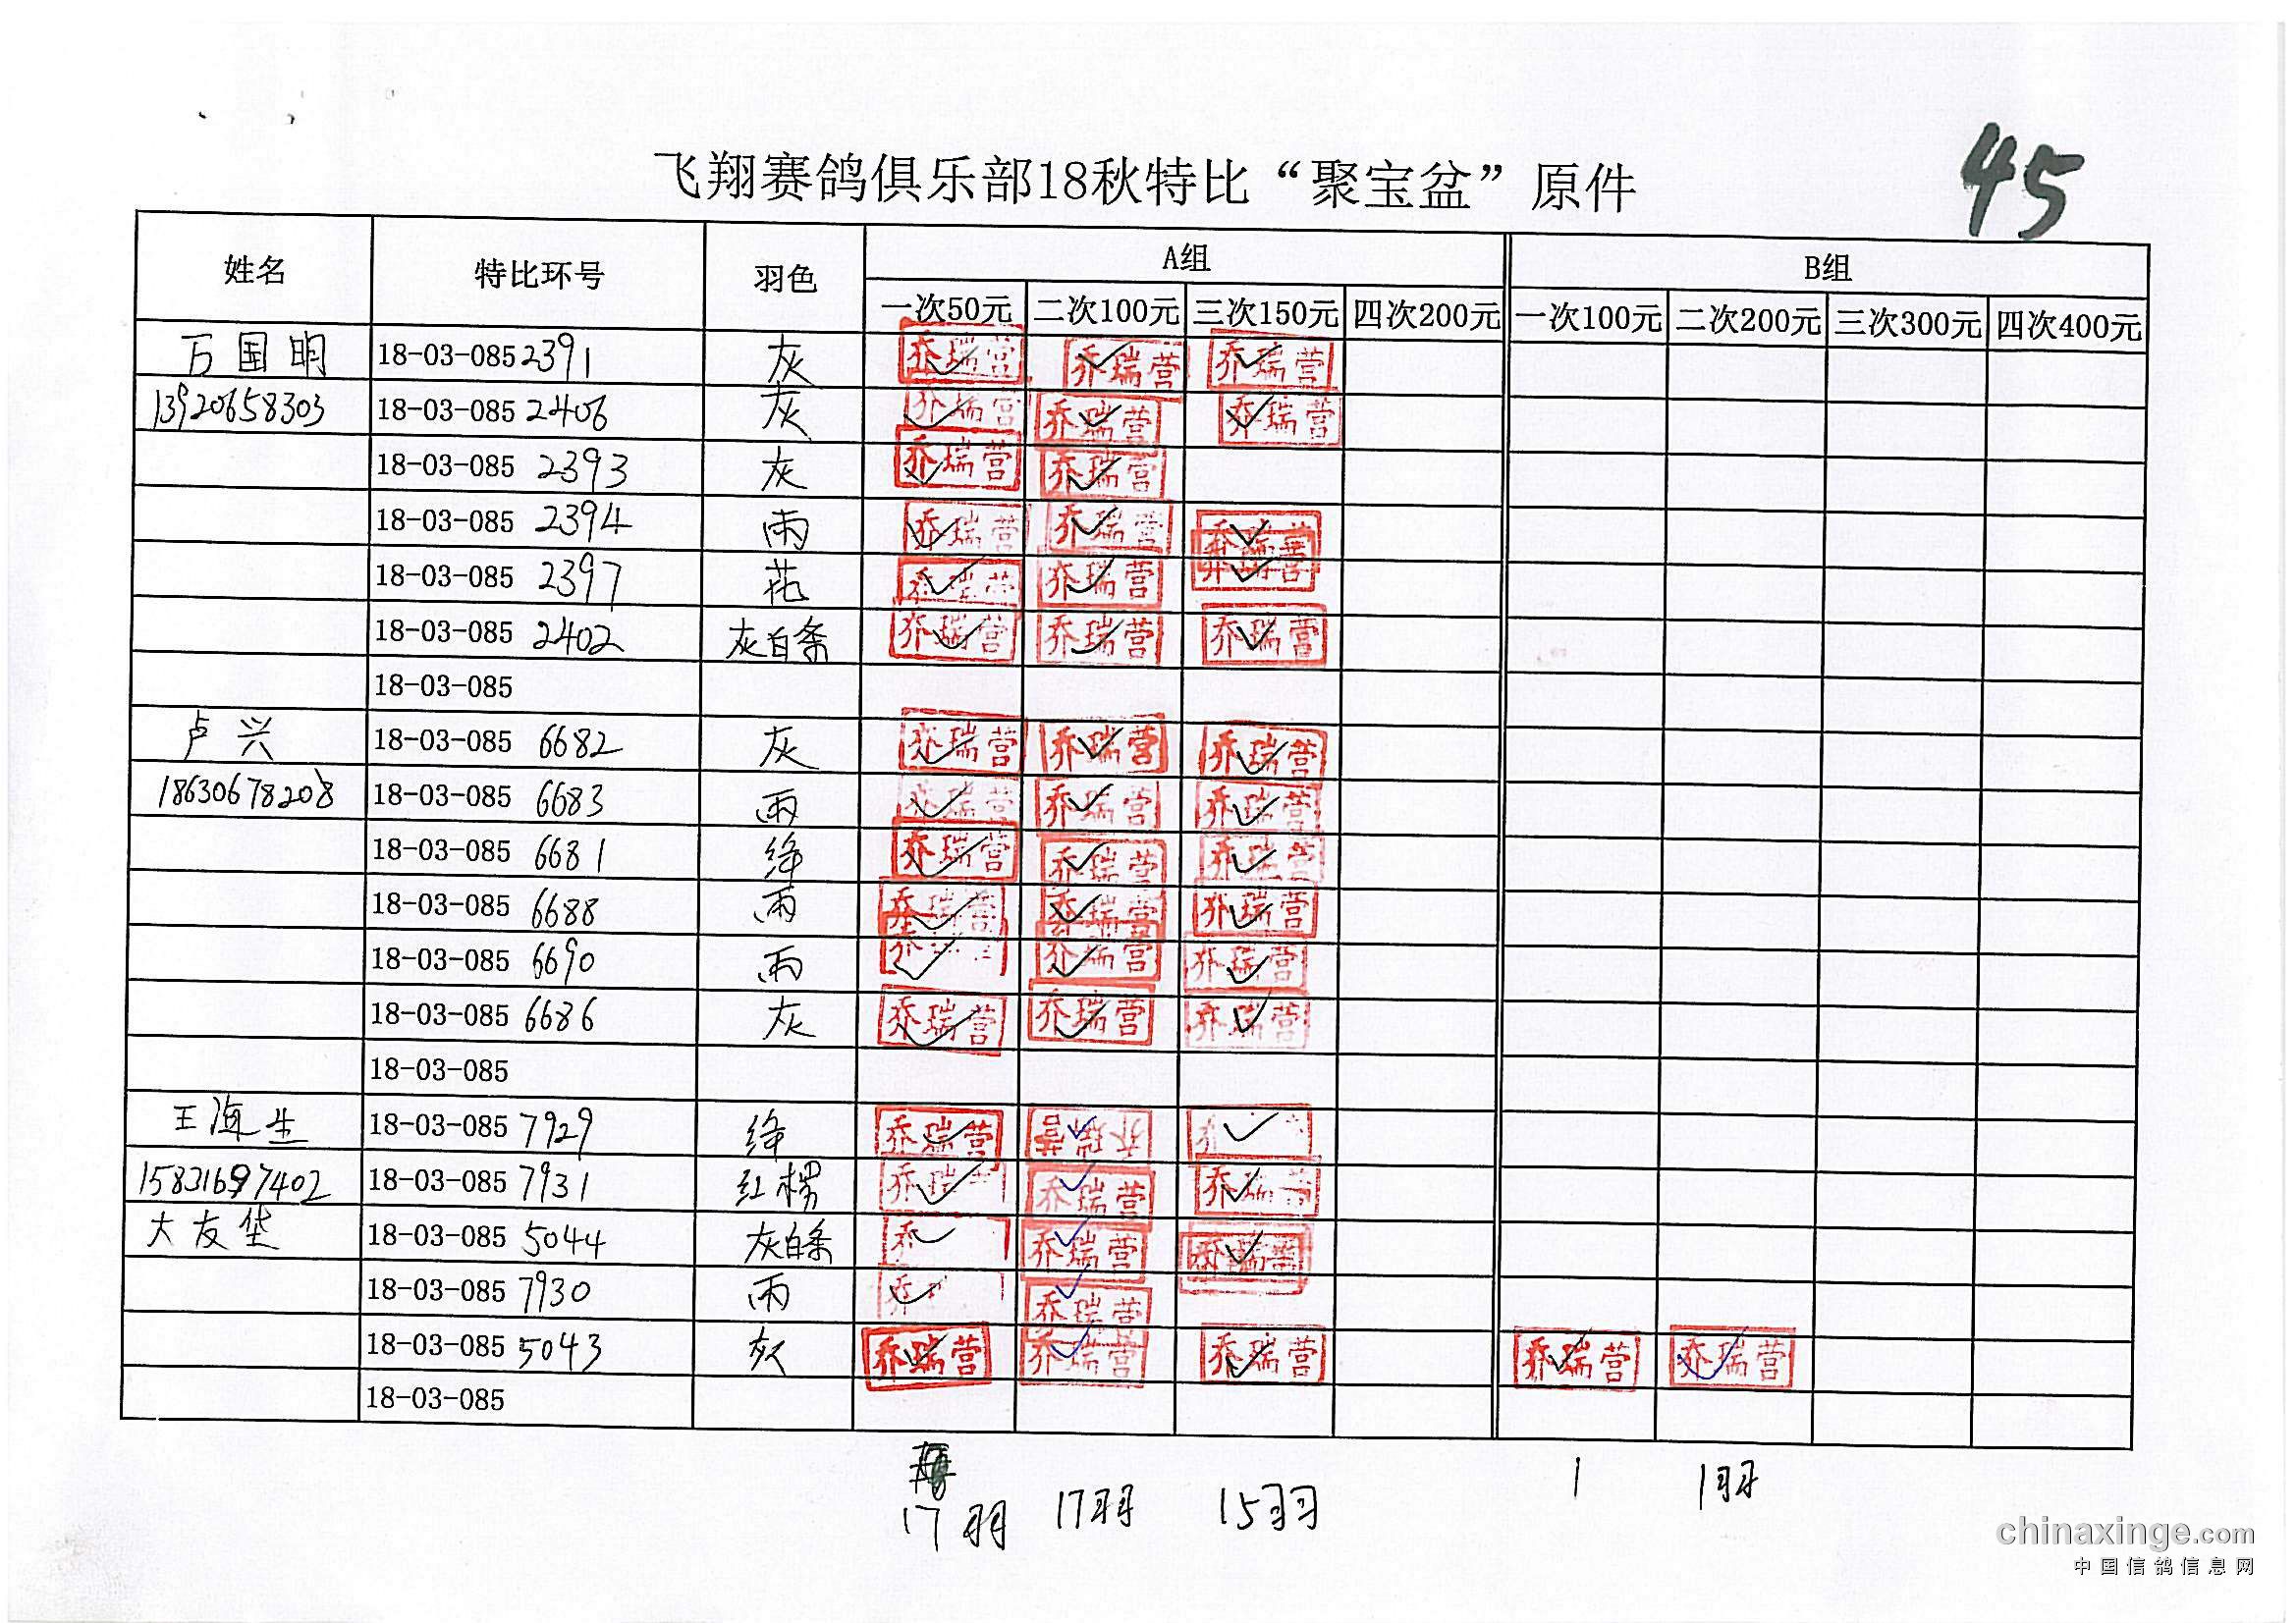 45
飞翔赛鸽俱乐部18秋特比“聚宝盆”原件
姓名 特比环号 羽色 A组 B组
一次50元 二次100元 三次150元 四次200元 一次100元 二次200元 三次300元 四次400元
万国明 18-03-085 2391 灰 乔瑞营 乔瑞营 乔瑞营
13920658303 18-03-085 2406 灰 乔瑞营 乔瑞营 乔瑞营
18-03-085 2393 灰 乔瑞营 乔瑞营
18-03-085 2394 雨 乔瑞营 乔瑞营 乔瑞营
18-03-085 2397 花 乔瑞营 乔瑞营 乔瑞营
18-03-085 2402 灰白条 乔瑞营 乔瑞营 乔瑞营
18-03-085
卢兴 18-03-085 6682 灰 乔瑞营 乔瑞营 乔瑞营
18630678208 18-03-085 6683 雨 乔瑞营 乔瑞营 乔瑞营
18-03-085 6681 绛 乔瑞营 乔瑞营 乔瑞营
18-03-085 6688 雨 乔瑞营 乔瑞营 乔瑞营
18-03-085 6690 雨 乔 乔瑞营 乔瑞营
18-03-085 6686 灰 乔瑞营 乔瑞营 乔瑞营
18-03-085
王海生 18-03-085 7929 绛 乔瑞营 乔瑞营 乔
15831697402 18-03-085 7931 红楞 乔瑞营 乔瑞营 乔瑞营
大友垡 18-03-085 5044 灰白条 乔 乔瑞营 乔瑞营
18-03-085 7930 雨 乔 乔瑞营
18-03-085 5043 灰 乔瑞营 乔瑞营 乔瑞营 乔瑞营 乔瑞营
18-03-085
17羽 17羽 15羽 1 1羽
chinaxinge.com
中国信鸽信息网